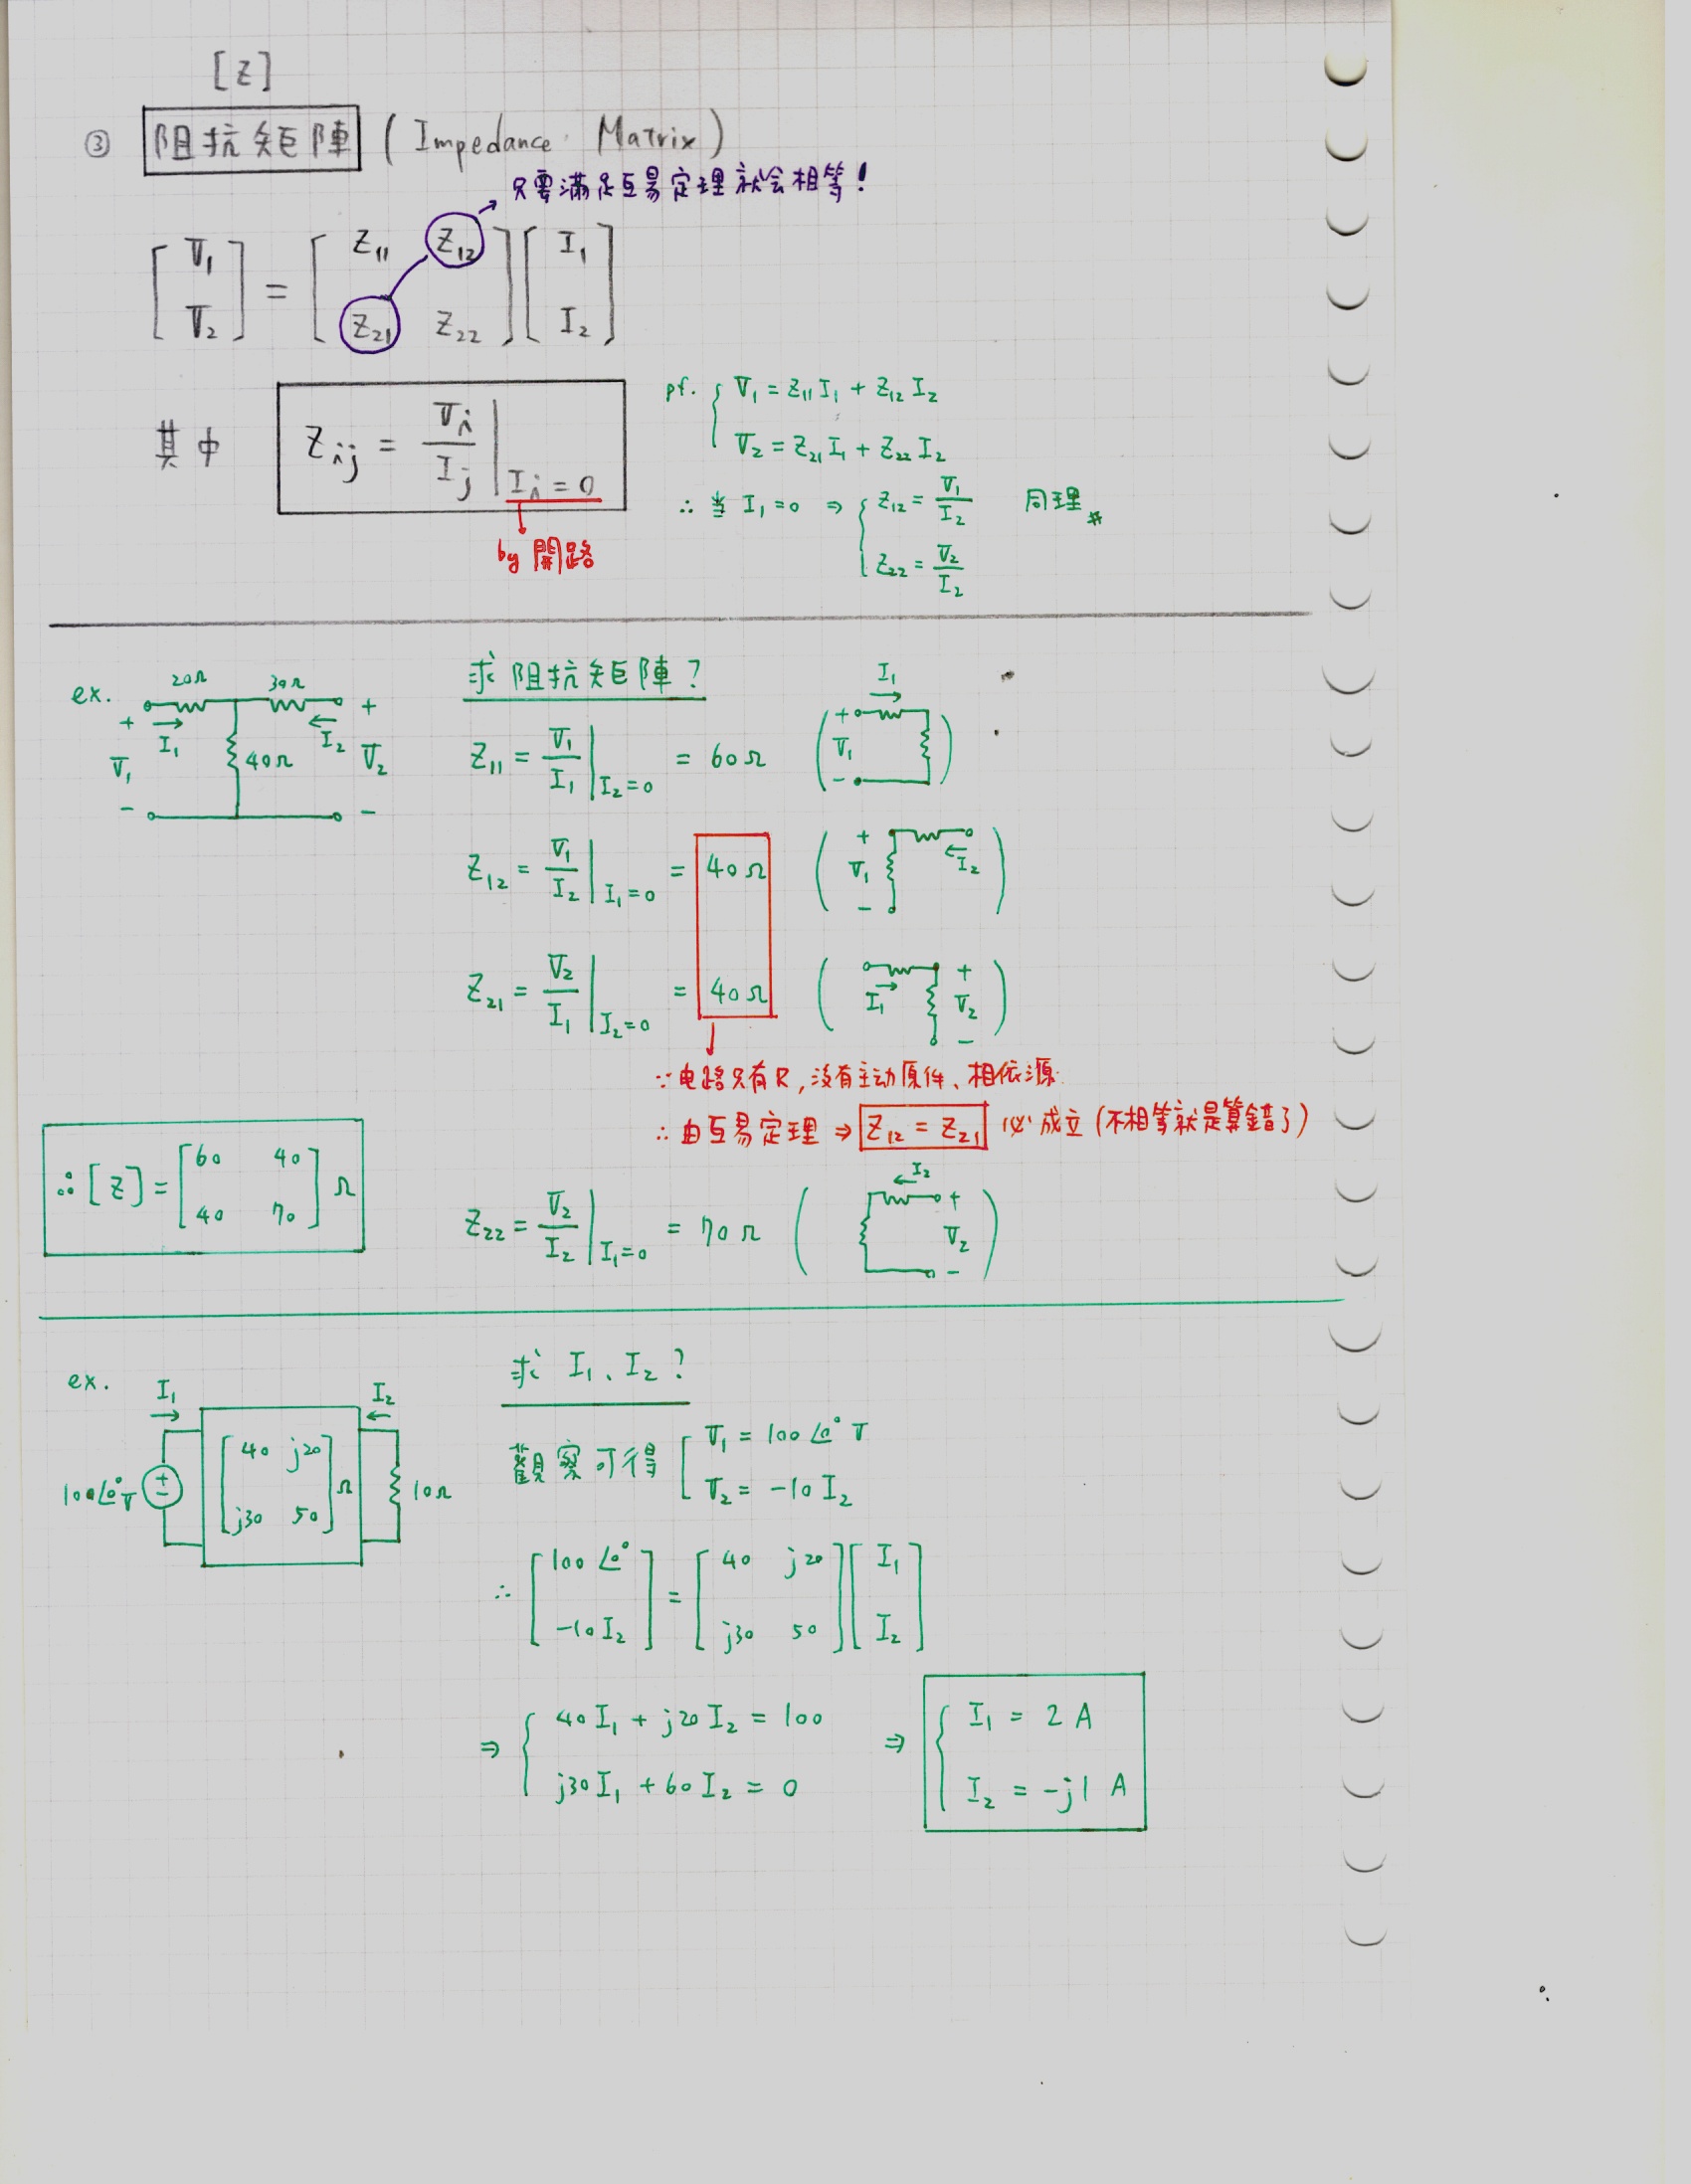 [Z]
③ 阻抗矩陣 (Impedance Matrix)
只要滿足互易定理就会相等!
[V₁ V₂] = [Z₁₁ Z₁₂ Z₂₁ Z₂₂] [I₁ I₂]
其中 Zij = Vi/Ij | Ii=0
by 開路
pf. { V₁ = Z₁₁I₁ + Z₁₂I₂
V₂ = Z₂₁I₁ + Z₂₂I₂
∴ 当 I₁=0 ⇒ { Z₁₂ = V₁/I₂ 同理 #
Z₂₂ = V₂/I₂
ex.
20Ω 30Ω
+ I₁ I₂ +
V₁ 40Ω V₂
- -
求阻抗矩陣?
Z₁₁ = V₁/I₁ | I₂=0 = 60Ω ( I₁ + V₁ - )
Z₁₂ = V₁/I₂ | I₁=0 = 40Ω ( + V₁ - I₂ )
Z₂₁ = V₂/I₁ | I₂=0 = 40Ω ( I₁ + V₂ - )
∵ 电路只有R, 沒有主动原件、相依源
∴ 由互易定理 ⇒ Z₁₂ = Z₂₁ 必成立 (不相等就是算錯了)
∴ [Z] = [60 40 40 70] Ω
Z₂₂ = V₂/I₂ | I₁=0 = 70Ω ( I₂ + V₂ - )
ex.
I₁ I₂
100∠0° V + - [40 j20 j30 50] Ω 10Ω
求 I₁、I₂?
觀察可得 [ V₁ = 100∠0° V
V₂ = -10I₂
∴ [100∠0° -10I₂] = [40 j20 j30 50] [I₁ I₂]
⇒ { 40I₁ + j20I₂ = 100
j30I₁ + 60I₂ = 0
⇒ { I₁ = 2 A
I₂ = -j1 A